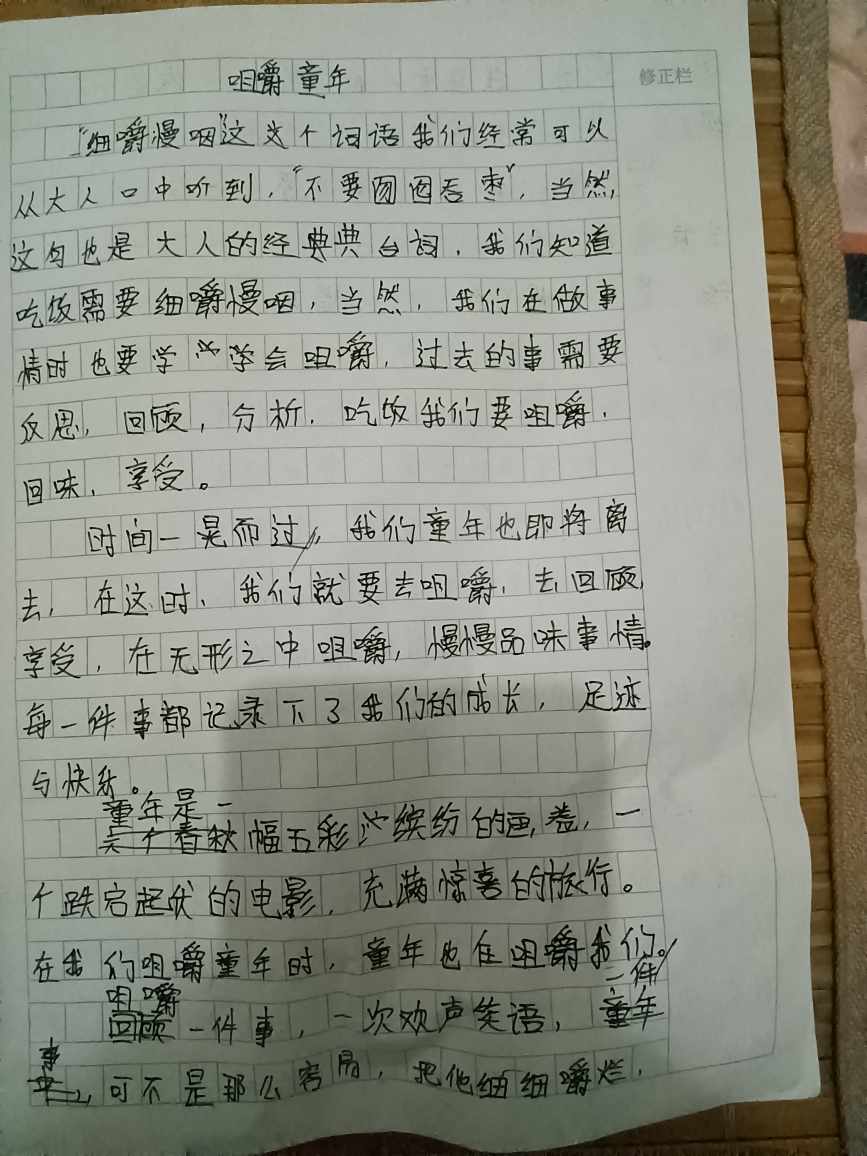 咀嚼童年
修正栏
"细嚼慢咽"这个词语我们经常可以
从大人口中听到，"不要囫囵吞枣"，当然，
这句也是大人的经典台词，我们知道
吃饭需要细嚼慢咽，当然，我们在做事
情时也要学学会咀嚼，过去的事需要
反思，回顾，分析，吃饭我们要咀嚼，
回味，享受。
时间一晃而过，我们童年也即将离
去，在这时，我们就要去咀嚼，去回顾，
享受，在无形之中咀嚼，慢慢品味事情。
每一件事都记录下了我们的成长，足迹
与快乐。
童年是一
幅五彩缤纷的画卷，一
个跌宕起伏的电影，充满惊喜的旅行。
在我们咀嚼童年时，童年也在咀嚼我们。
咀嚼 一件
一件事，一次欢声笑语，
事
可不是那么容易，把他细细嚼烂，